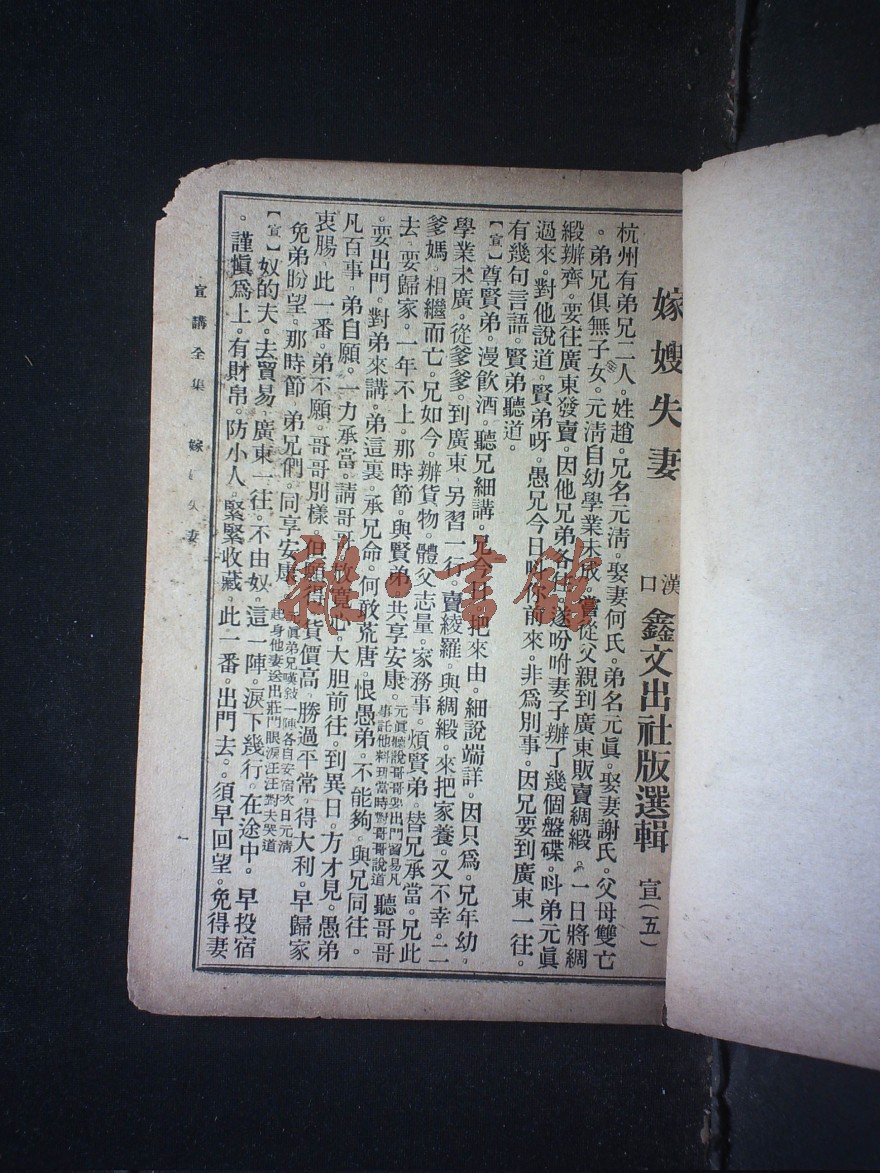 嫁嫂失妻
漢口 鑫文出社版選輯 宣(五)
杭州有弟兄二人。姓趙。兄名元清。娶妻何氏。弟名元眞。娶妻謝氏。父母雙亡
。弟兄俱無子女。元清自幼學業未成。嘗從父親到廣東販賣綢緞。一日將綢
緞辦齊。要往廣東發賣。因他兄弟各住。遂吩咐妻子辦了幾個盤碟。呌弟元眞
過來。對他說道。賢弟呀。愚兄今日呌你前來。非爲別事。因兄要到廣東一往。
有幾句言語。賢弟聽道。
【宣】尊賢弟。漫飲酒。聽兄細講。兄今日。把來由。細說端詳。因只爲。兄年幼。
學業未廣。從爹爹。到廣東。另習一行。賣綾羅。與綢緞。來把家養。又不幸。二
爹媽。相繼而亡。兄如今。辦貨物。體父志量。家務事。煩賢弟。替兄承當。兄此
去。要歸家。一年不上。那時節。與賢弟。共享安康。元眞聽說哥哥要出門貿易凡事託他料理當時對哥哥說道聽哥哥
。要出門。對弟來講。弟這裏。承兄命。何敢荒唐。恨愚弟。不能夠。與兄同往。
凡百事。弟自願。一力承當。請哥哥。放寬心。大胆前往。到異日。方才見。愚弟
衷腸。此一番。弟不願。哥哥別樣。但願得。貨價高。勝過平常。得大利。早歸家
免弟盼望。那時節。弟兄們。同享安康。元眞弟兄嘆敍一陣各自安宿次日元清起身他妻送出莊門眼淚汪汪對夫哭道
【宣】奴的夫。去貿易。廣東一往。不由奴。這一陣。淚下幾行。在途中。早投宿
。謹愼爲上。有財帛。防小人。緊緊收藏。此一番。出門去。須早回望。免得妻
宣講全集 嫁 失妻
一
雜·書館